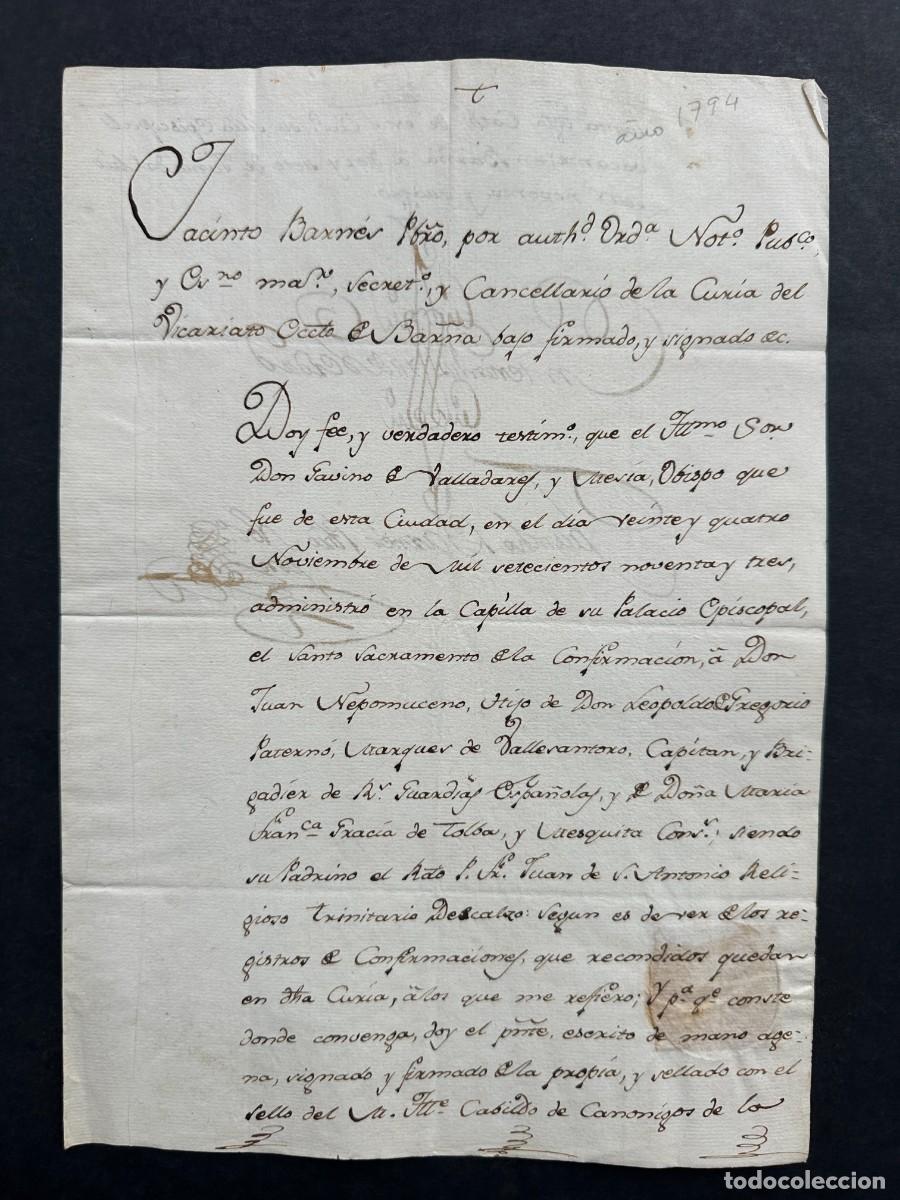 +
año 1794
Jacinto Barnés Pbro, por auth.d Ord.a Not.o Pub.co,
y Es.no ma.r, secret.o, y Cancellario de la Curia del
Vicariato Eccto de Barña bajo firmado, y signado &c.
Doy fee, y verdadero testim.o, que el Ill.mo S.or
Don Gavino de Valladares, y Mesia, Obispo que
fue de esta Ciudad, en el dia veinte y quatro
Noviembre de Mil setecientos noventa y tres,
administró en la Capilla de su Palacio Episcopal,
el Santo Sacramento de la Confirmacion, á Don
Juan Nepomuceno, Hijo de Don Leopoldo de Gregorio
Paternó, Marques de Vallesantoro, Capitan, y Bri-
gadier de R.s Guardias Españolas, y de Doña Maria
Fran.ca Gracia de Tolba, y Mesquita Cons.s; siendo
su Padrino el Rdo P. Fr. Juan de S. Antonio Reli-
gioso Trinitario Descalzo: segun es de ver de los re-
gistros de Confirmaciones, que recondidos quedan
en dha Curia, á los que me refiero; y p.a q.e conste
donde convenga, doy el pñte, escrito de mano age-
na, signado y firmado de la propia, y sellado con el
sello del M. Ill.e Cabildo de Canonigos de la
todocoleccion